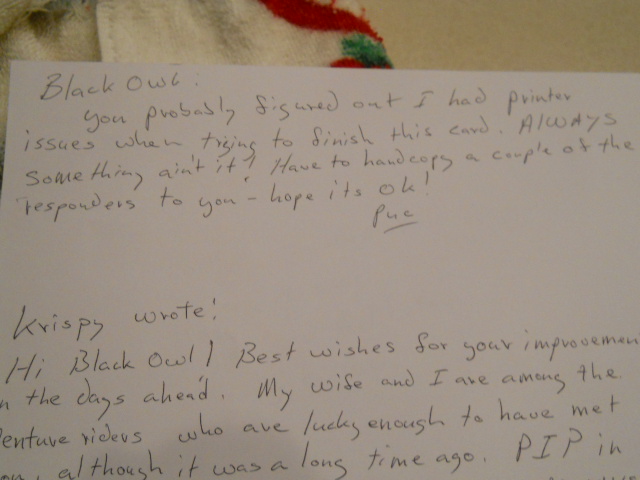 Black Owl:
you probably figured out I had printer
issues when trying to finish this card. AlWAYS
something ain't it! Have to handcopy a couple of the
responders to you - hope its ok!
Puc
Krispy wrote!
Hi Black Owl! Best wishes for your improvemen
n the days ahead. My wife and I are among the
enture riders who are lucky enough to have met
although it was a long time ago. PIP in